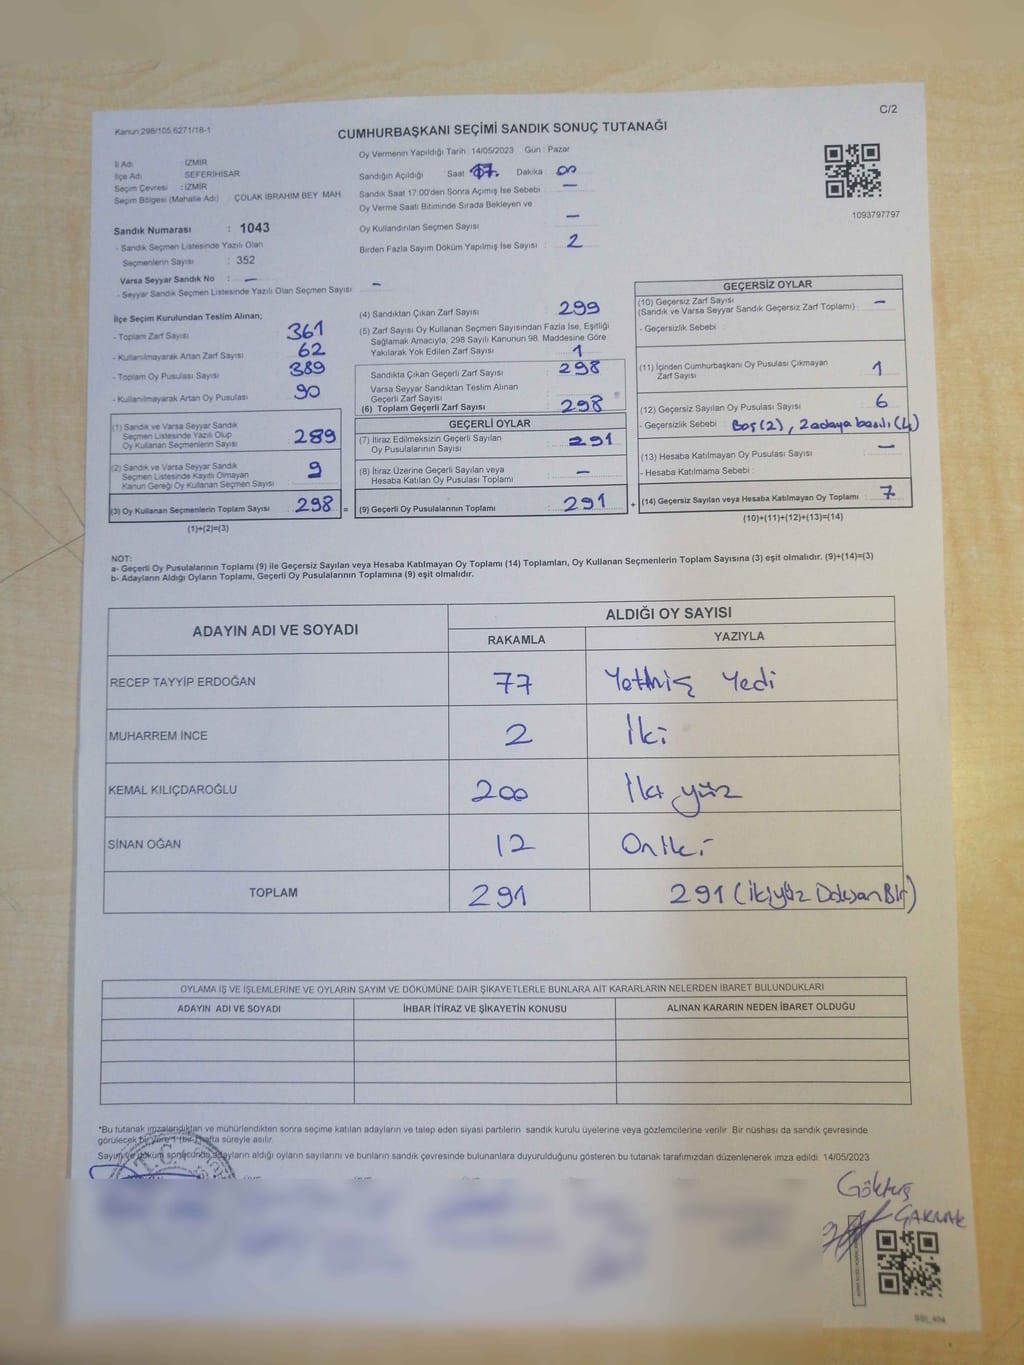 C/2
Kanun:298/105.6271/18-1
CUMHURBAŞKANI SEÇİMİ SANDIK SONUÇ TUTANAĞI
İl Adı İZMİR
İlçe Adı SEFERİHİSAR
Seçim Çevresi : İZMİR
Seçim Bölgesi (Mahalle Adı) : ÇOLAK İBRAHİM BEY MAH
Sandık Numarası : 1043
- Sandık Seçmen Listesinde Yazılı Olan
Seçmenlerin Sayısı : 352
Varsa Seyyar Sandık No : —
- Seyyar Sandık Seçmen Listesinde Yazılı Olan Seçmen Sayısı —
Oy Vermenin Yapıldığı Tarih :14/05/2023 Gün : Pazar
Sandığın Açıldığı Saat 17. Dakika 00
Sandık Saat 17:00'den Sonra Açımış İse Sebebi : —
Oy Verme Saati Bitiminde Sırada Bekleyen ve
Oy Kullandırılan Seçmen Sayısı : —
Birden Fazla Sayım Döküm Yapılmış İse Sayısı : 2
1093797797
İlçe Seçim Kurulundan Teslim Alınan;
- Toplam Zarf Sayısı : 361
- Kullanılmayarak Artan Zarf Sayısı : 62
- Toplam Oy Pusulası Sayısı : 389
- Kullanılmayarak Artan Oy Pusulası : 90
(1) Sandık ve Varsa Seyyar Sandık
Seçmen Listesinde Yazılı Olup
Oy Kullanan Seçmenlerin Sayısı : 289
(2) Sandık ve Varsa Seyyar Sandık
Seçmen Listesinde Kayıtlı Olmayan
Kanun Gereği Oy Kullanan Seçmen Sayısı : 9
(3) Oy Kullanan Seçmenlerin Toplam Sayısı : 298 =
(1)+(2)=(3)
(4) Sandıktan Çıkan Zarf Sayısı : 299
(5) Zarf Sayısı Oy Kullanan Seçmen Sayısından Fazla İse, Eşitliği
Sağlamak Amacıyla, 298 Sayılı Kanunun 98. Maddesine Göre
Yakılarak Yok Edilen Zarf Sayısı : 1
Sandıkta Çıkan Geçerli Zarf Sayısı : 298
Varsa Seyyar Sandıktan Teslim Alınan
Geçerli Zarf Sayısı
(6) Toplam Geçerli Zarf Sayısı : 298
GEÇERLİ OYLAR
(7) İtiraz Edilmeksizin Geçerli Sayılan
Oy Pusulalarının Sayısı : 291
(8) İtiraz Üzerine Geçerli Sayılan veya
Hesaba Katılan Oy Pusulası Toplamı : —
(9) Geçerli Oy Pusulalarının Toplamı : 291 +
GEÇERSİZ OYLAR
(10) Geçersiz Zarf Sayısı
(Sandık ve Varsa Seyyar Sandık Geçersiz Zarf Toplamı) : —
- Geçersizlik Sebebi :
(11) İçinden Cumhurbaşkanı Oy Pusulası Çıkmayan
Zarf Sayısı : 1
(12) Geçersiz Sayılan Oy Pusulası Sayısı : 6
- Geçersizlik Sebebi : Boş(2), 2 adaya basılı (4)
(13) Hesaba Katılmayan Oy Pusulası Sayısı : —
- Hesaba Katılmama Sebebi :
(14) Geçersiz Sayılan veya Hesaba Katılmayan Oy Toplamı : 7
(10)+(11)+(12)+(13)=(14)
NOT:
a- Geçerli Oy Pusulalarının Toplamı (9) ile Geçersiz Sayılan veya Hesaba Katılmayan Oy Toplamı (14) Toplamları, Oy Kullanan Seçmenlerin Toplam Sayısına (3) eşit olmalıdır. (9)+(14)=(3)
b- Adayların Aldığı Oyların Toplamı, Geçerli Oy Pusulalarının Toplamına (9) eşit olmalıdır.
ADAYIN ADI VE SOYADI ALDIĞI OY SAYISI
RAKAMLA YAZIYLA
RECEP TAYYİP ERDOĞAN 77 Yetmiş Yedi
MUHARREM İNCE 2 İki
KEMAL KILIÇDAROĞLU 200 İki yüz
SİNAN OĞAN 12 Oniki
TOPLAM 291 291 (İkiyüz Doksan Bir)
OYLAMA İŞ VE İŞLEMLERİNE VE OYLARIN SAYIM VE DÖKÜMÜNE DAİR ŞİKAYETLERLE BUNLARA AİT KARARLARIN NELERDEN İBARET BULUNDUKLARI
ADAYIN ADI VE SOYADI İHBAR İTİRAZ VE ŞİKAYETİN KONUSU ALINAN KARARIN NEDEN İBARET OLDUĞU
*Bu tutanak imzalandıktan ve mühürlendikten sonra seçime katılan adayların ve talep eden siyasi partilerin sandık kurulu üyelerine veya gözlemcilerine verilir. Bir nüshası da sandık çevresinde
görülecek bir yere 1 (bir) hafta süreyle asılır.
Sayım ve döküm sonucunda adayların aldığı oyların sayılarını ve bunların sandık çevresinde bulunanlara duyurulduğunu gösteren bu tutanak tarafımızdan düzenlenerek imza edildi. 14/05/2023
T.C.
Göktuş